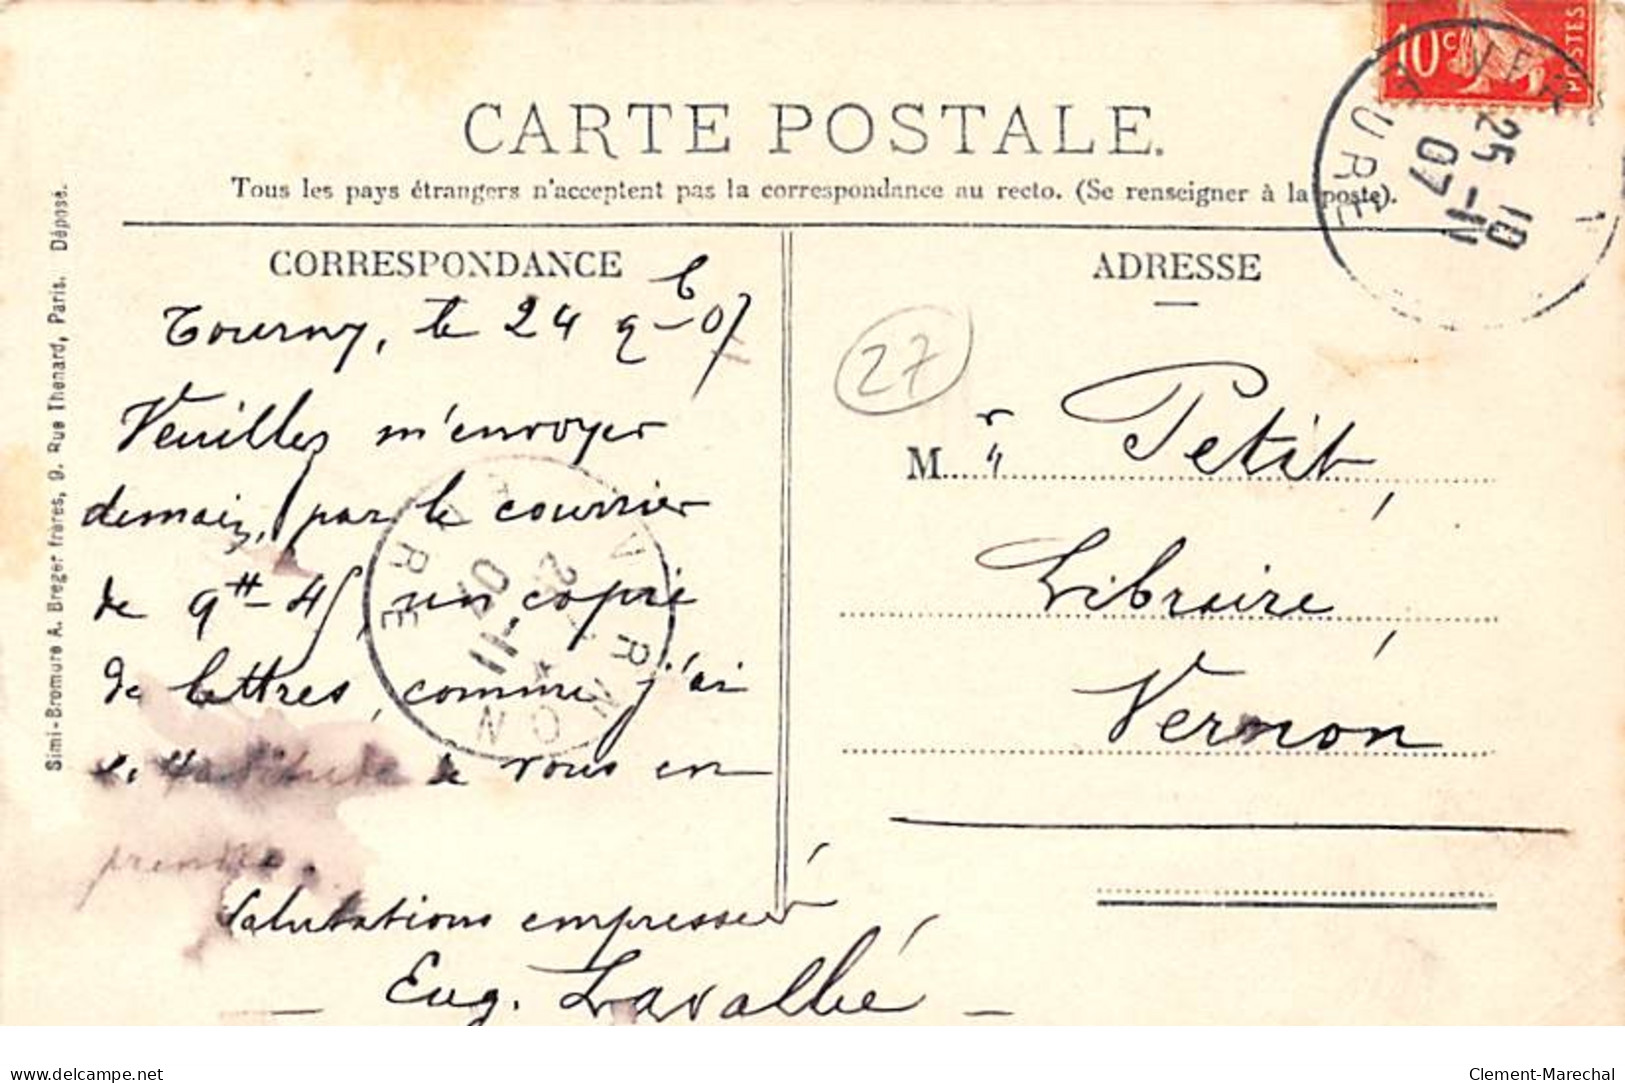 CARTE POSTALE.
Tous les pays étrangers n'acceptent pas la correspondance au recto. (Se renseigner à la poste).
10c POSTES
25-11 07
EURE
Simi-Bromure A. Breger frères, 9. Rue Thenard, Paris. Déposé.
CORRESPONDANCE
Tourny, le 24 9bre 07
Veuillez m'envoyer
demain, par le courrier
de 9H-45, un copie
de lettres, comme j'ai
l'habitude de vous en
prendre.
Salutations empressées
Eug. Lavallée
VERNON
EURE
ADRESSE
27
M.r Petit,
Libraire,
Vernon
delcampe.net
Clement-Marechal